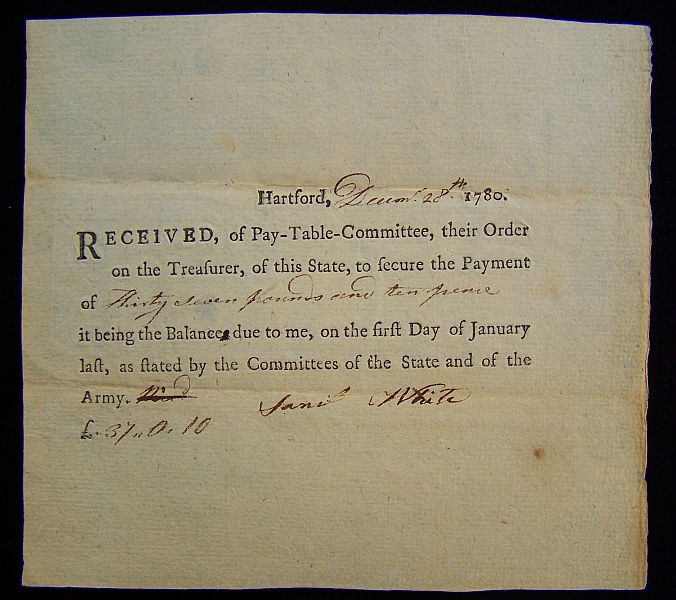 Hartford, Decemr. 28th. 1780.
RECEIVED, of Pay-Table-Committee, their Order
on the Treaſurer, of this State, to ſecure the Payment
of Thirty seven pounds and ten pence
it being the Balance due to me, on the firſt Day of January
laſt, as ſtated by the Committees of the State and of the
Army.
White
£. 37 „ 0 „ 10